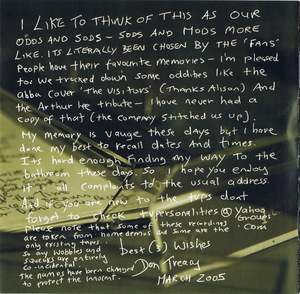 I LIKE TO THINK OF THIS AS OUR
ODDS AND SODS - SODS AND MODS MORE
LIKE. ITS LITERALLY BEEN CHOSEN BY THE "FANS"
People have their favourite memories - I'm pleased
too we tracked down some oddities like the
abba cover 'The Visitors' (Thanks Alison) and
the Arthur Lee tribute - I have never had a
copy of that (the company stitched us up).
My memory is vauge these days but I have
done my best to recall dates and times.
Its hard enough finding my way to the
bathroom these days so I hope you enjoy
it; all complaints to the usual address.
And if you are new to the tups dont
forget to check tvpersonalities @ Yahoo
Groups.
.com
please note that some of these recordings
are taken from home demos we some are the
only existing tapes..
so any wobbles and
squeaks are entirely
co-incidental.
The names have been changed
to protect the innocent.
best (3) Wishes
Dan Treacy
MARCH 2005